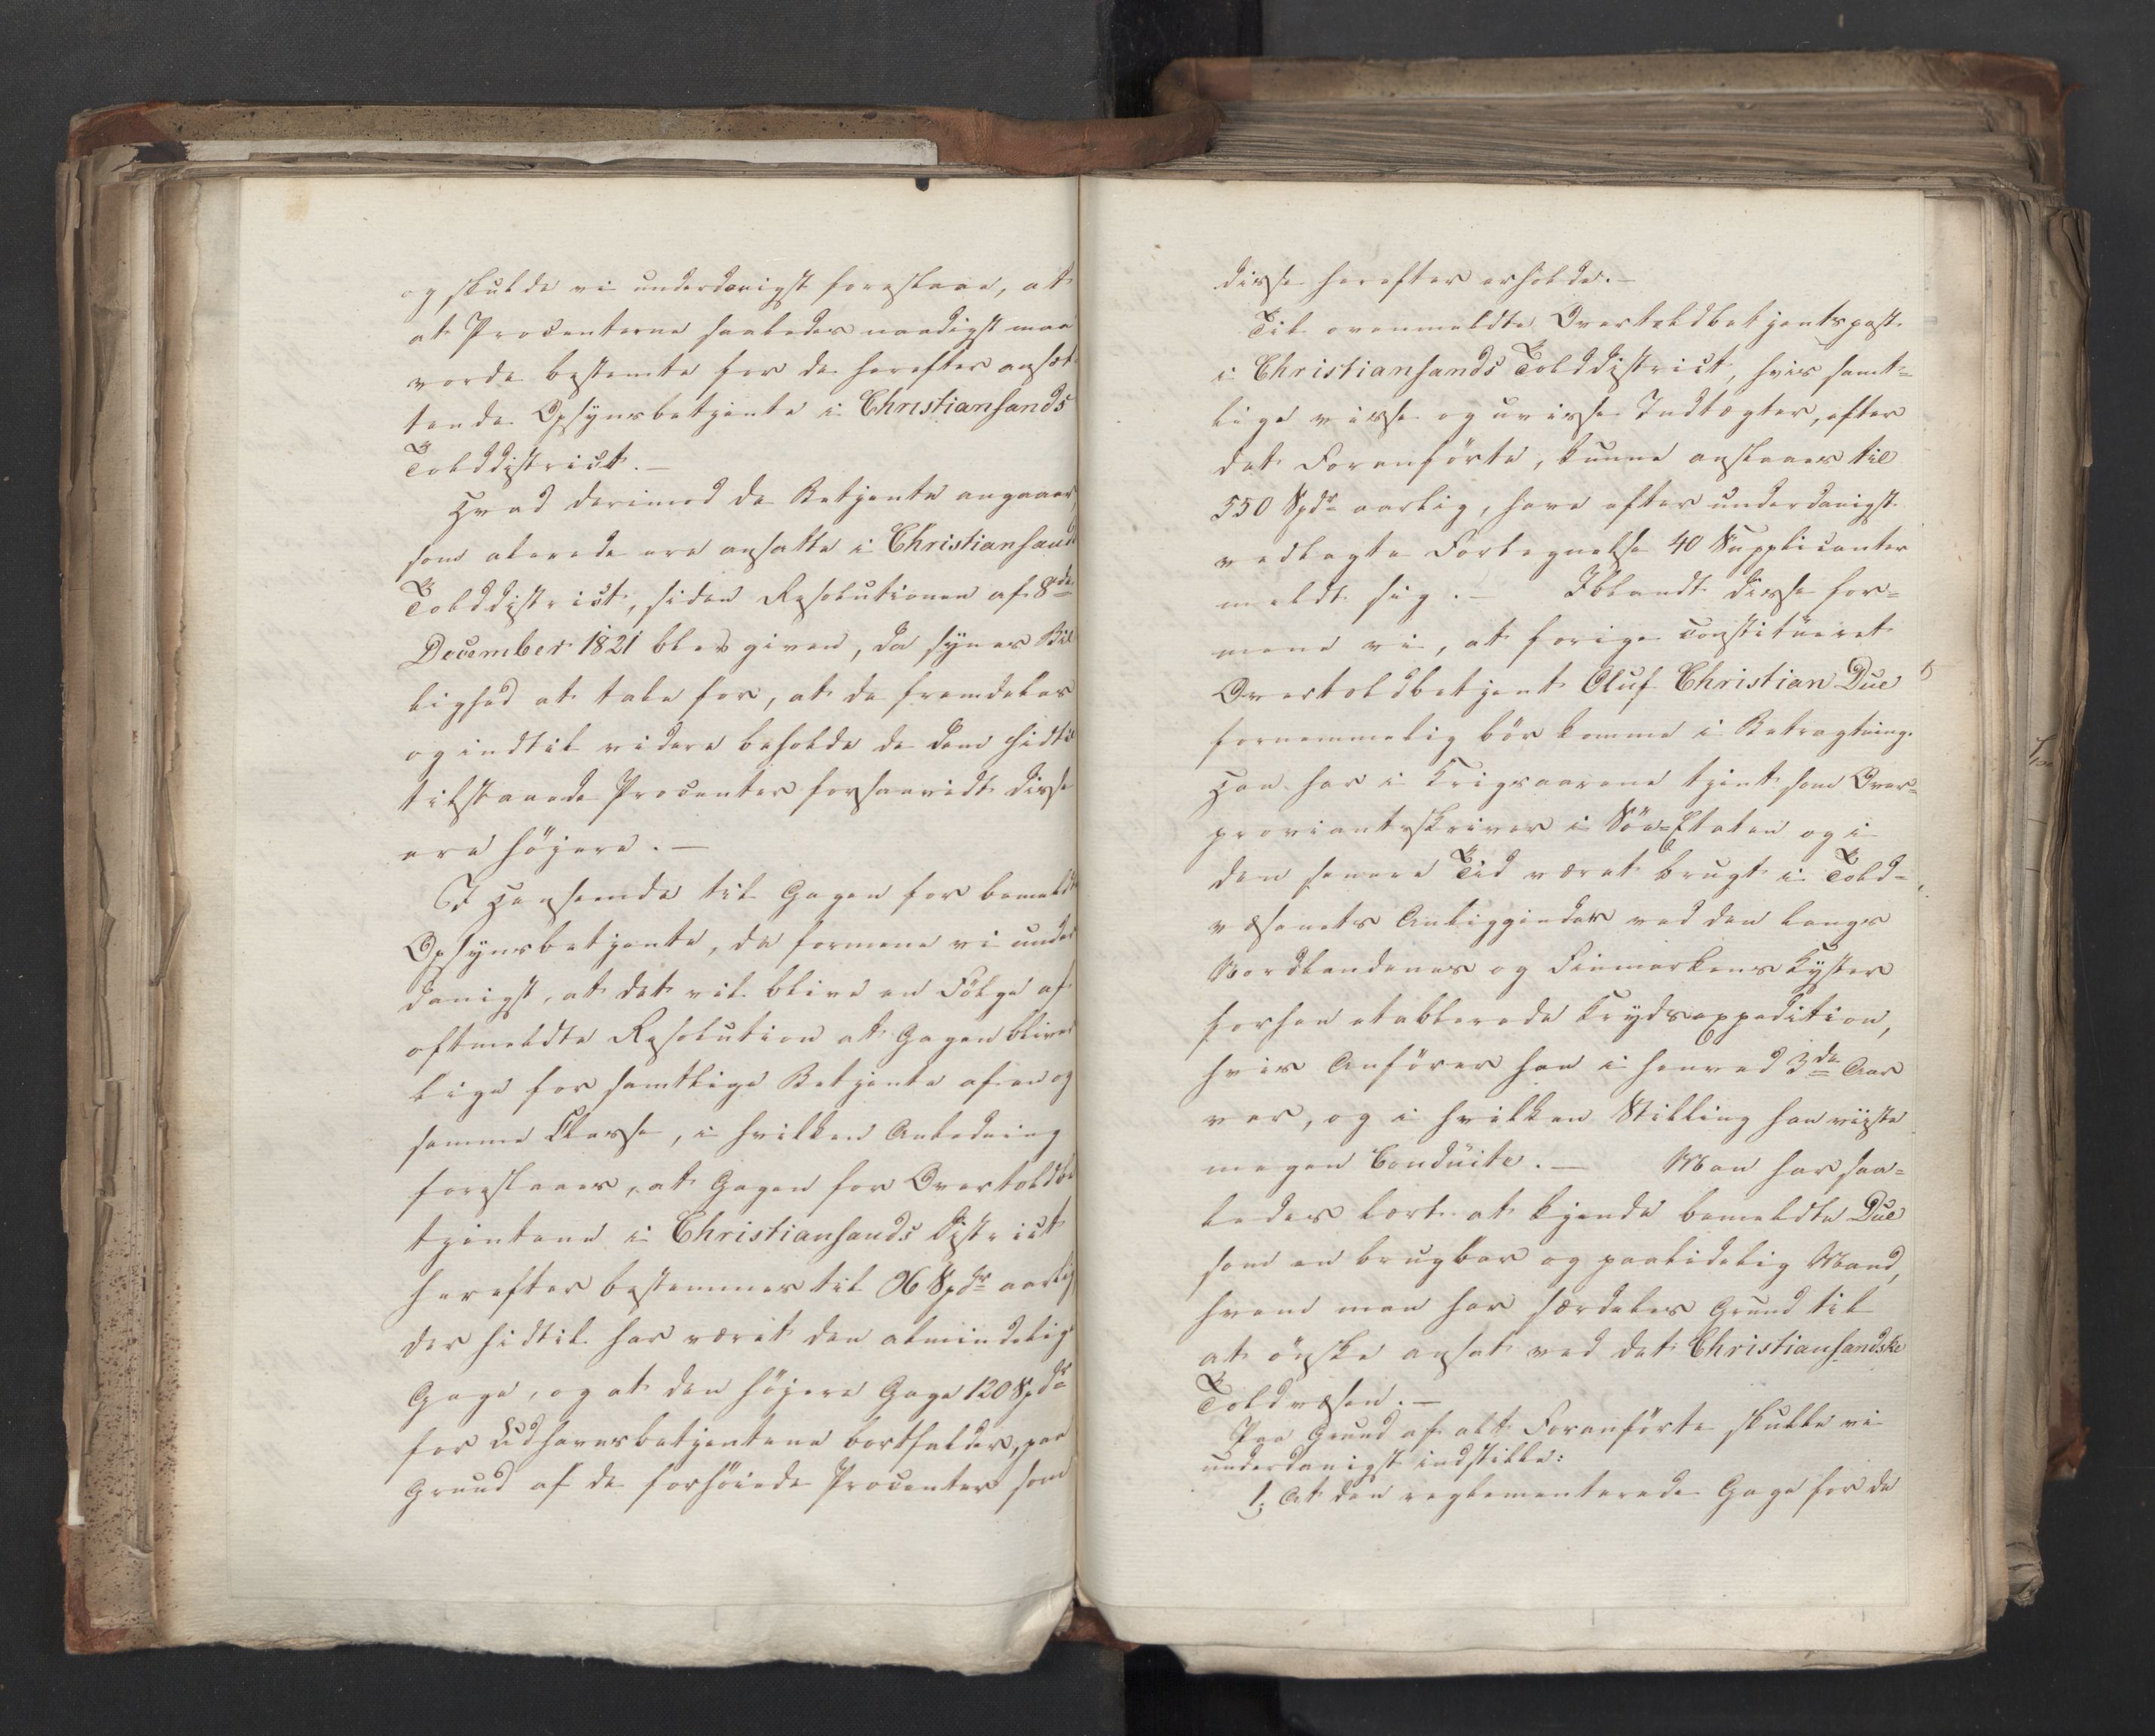 og skulde vi underdanigst foreslaae, at
at Procenterne saaledes naadigst maa
vorde bestemte for de herefter ansæt
tende Opsynsbetjente i Christiansands
Tolddistrict. —
Hvad derimod de Betjente angaaer,
som alerede ere ansatte i Christiansands
Tolddistrict, siden Resolutionen af 8de
December 1821 blev given, da synes Bil
lighed at tale for, at de fremdeles
og indtil videre beholde de dem hidtil
tilstaaede Procenter forsaavidt disse
ere höjere. —
I Henseende til Gagen for bemeldte
Opsynsbetjente, da formene vi under
danigst, at det vil blive en Fölge af
oftmeldte Resolution at Gagen bliver
lige for samtlige Betjente af en og
samme Classe, i hvilken Anledning
foreslaaes, at Gagen for Overtoldbe
tjentene i Christiansands District
herefter bestemmes til 96 Spdr aarlig
der hidtil har været den almindelige
Gage, og at den höjere Gage 120 Spdr
for Udhavnsbetjentene bortfalder, paa
Grund af de forhöiede Procenter som
disse herefter erholde. —
Til ovenmeldte Overtoldbetjentspost
i Christiansands Tolddistrict, hvis samt=
lige visse og uvisse Indtægter, efter
det Foranförte, kunne anslaaes til
550 Spdr aarlig, have efter underdanigst
vedlagte Fortegnelse 40 Supplicanter
meldt sig. — Iblandt disse for=
mene vi, at forige constitueret
Overtoldbetjent Oluf Christian Due
fornemmelig bör komme i Betragtning.
Han har i Krigsaarene tjent som Over=
proviantskriver i Söe=Etaten og i
den senere Tid været brugt i Told=
væsenets Anliggender ved den langs
Nordlandenes og Finmarkens Kyster
forhen etablerede Krydsexpedition,
hvis Anförer han i henved 3de Aar
var, og i hvilken Stilling han viiste
megen Conduite. — Man har saa=
ledes lært at kjende bemeldte Due
som en brugbar og paalidelig Mand,
hvem man har særdeles Grund til
at önske ansat ved det Christiansandske
Toldvæsen. —
Paa Grund af alt Foranförte skulle vi
underdanigst indstille:
1; At den reglementerede Gage for de